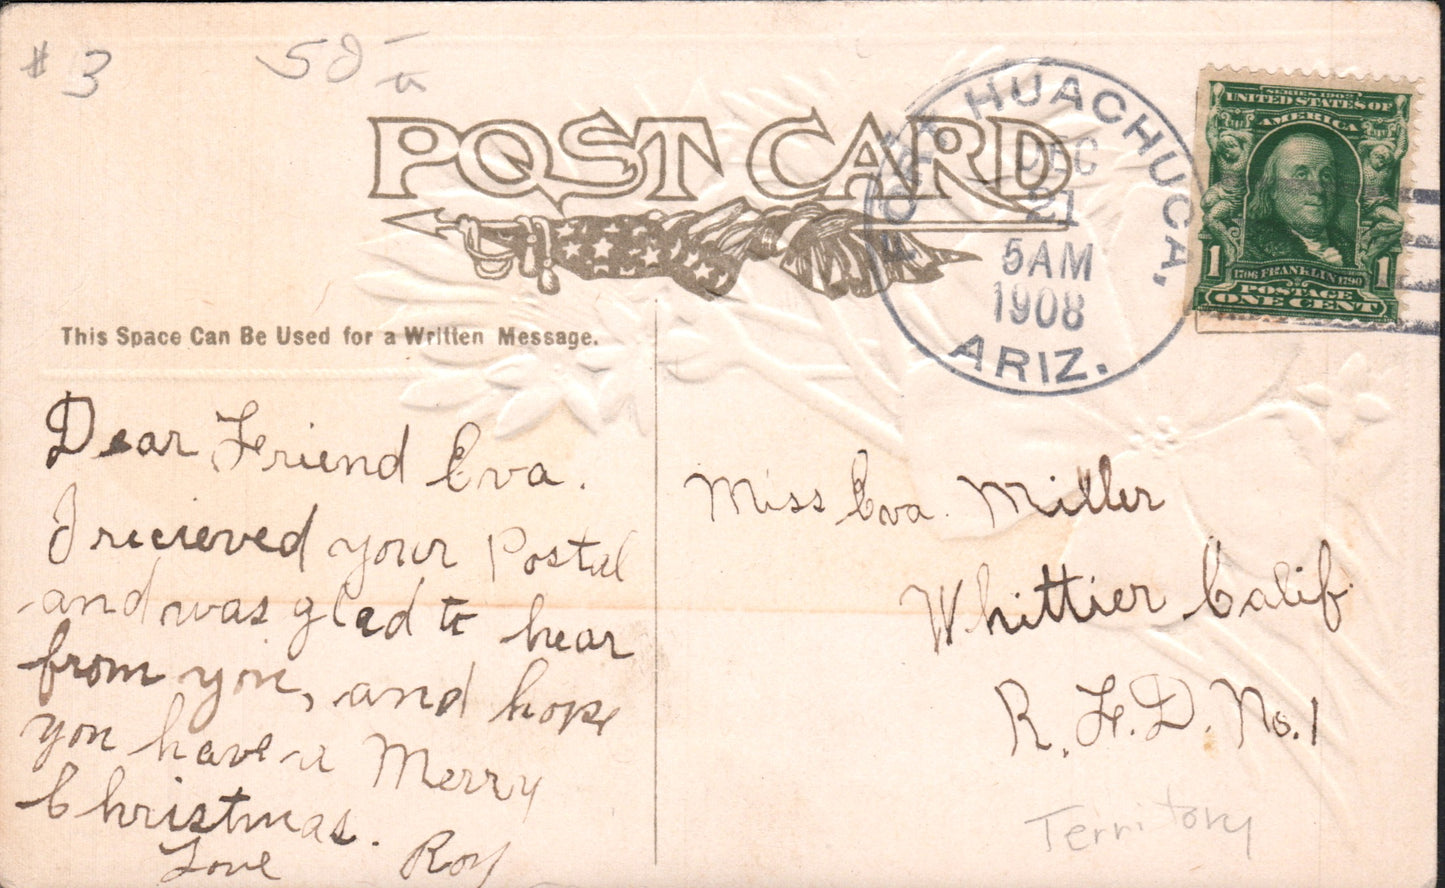 # 3
POST CARD
FORT HUACHUCA,
DEC
21
5AM
1908
ARIZ.
SERIES 1902
UNITED STATES OF
AMERICA
1 1706 FRANKLIN 1790 1
POSTAGE
ONE CENT
This Space Can Be Used for a Written Message.
Dear Friend Eva.
I recieved your Postal
and was glad to hear
from you, and hope
you have a Merry
Christmas.
Love Roy
Miss Eva Miller
Whittier Calif.
R. F. D. No. 1
Territory